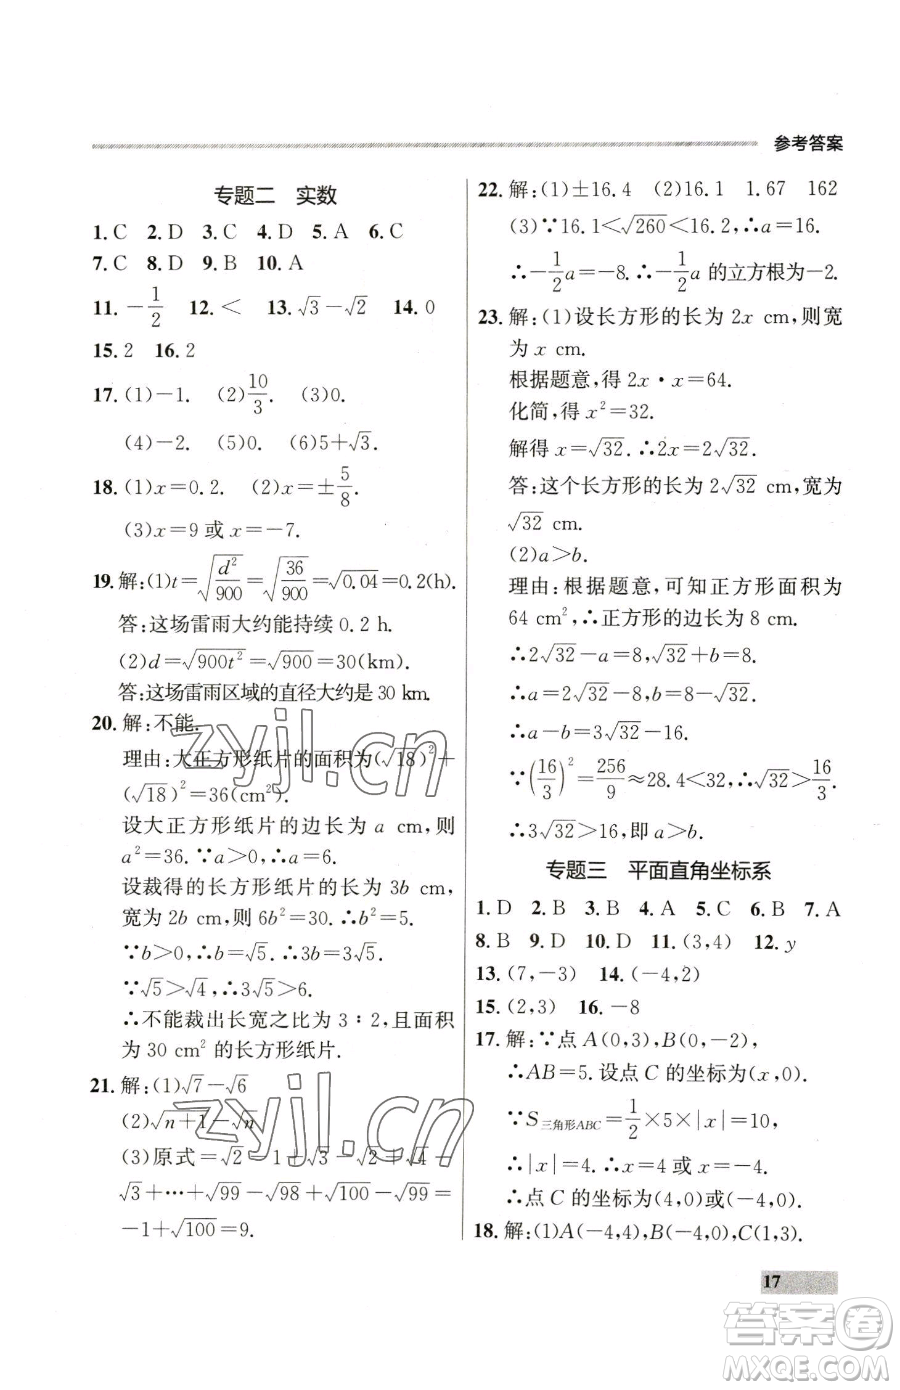 参考答案
专题二 实数
1.C 2.D 3.C 4.D 5.A 6.C
7.C 8.D 9.B 10.A
11.-1/2 12.< 13.√3-√2 14.0
15.2 16.2
17.(1)-1. (2)10/3. (3)0.
(4)-2. (5)0. (6)5+√3.
18.(1)x=0.2. (2)x=±5/8.
(3)x=9 或 x=-7.
19.解:(1)t=√(d²/900)=√(36/900)=√0.04=0.2(h).
答:这场雷雨大约能持续 0.2 h.
(2)d=√(900t²)=√900=30(km).
答:这场雷雨区域的直径大约是 30 km.
20.解:不能.
理由:大正方形纸片的面积为(√18)²+
(√18)²=36(cm²).
设大正方形纸片的边长为 a cm,则
a²=36.∵a>0,∴a=6.
设裁得的长方形纸片的长为 3b cm,
宽为 2b cm,则 6b²=30.∴b²=5.
∵b>0,∴b=√5.∴3b=3√5.
∵√5>√4,∴3√5>6.
∴不能裁出长宽之比为 3∶2,且面积
为 30 cm² 的长方形纸片.
21.解:(1)√7-√6
(2)√(n+1)-√n
(3)原式=√2-1+√3-√2+√4-
√3+…+√99-√98+√100-√99=
-1+√100=9.
22.解:(1)±16.4 (2)16.1 1.67 162
(3)∵16.1<√260<16.2,∴a=16.
∴-1/2a=-8.∴-1/2a 的立方根为-2.
23.解:(1)设长方形的长为 2x cm,则宽
为 x cm.
根据题意,得 2x·x=64.
化简,得 x²=32.
解得 x=√32.∴2x=2√32.
答:这个长方形的长为 2√32 cm,宽为
√32 cm.
(2)a>b.
理由:根据题意,可知正方形面积为
64 cm²,∴正方形的边长为 8 cm.
∴2√32-a=8,√32+b=8.
∴a=2√32-8,b=8-√32.
∴a-b=3√32-16.
∵(16/3)²=256/9≈28.4<32,∴√32>16/3.
∴3√32>16,即 a>b.
专题三 平面直角坐标系
1.D 2.B 3.B 4.A 5.C 6.B 7.A
8.B 9.D 10.D 11.(3,4) 12.y
13.(7,-3) 14.(-4,2)
15.(2,3) 16.-8
17.解:∵点 A(0,3),B(0,-2),
∴AB=5.设点 C 的坐标为(x,0).
∵S三角形ABC=1/2×5×|x|=10,
∴|x|=4.∴x=4 或 x=-4.
∴点 C 的坐标为(4,0)或(-4,0).
18.解:(1)A(-4,4),B(-4,0),C(1,3).
17
zyjl.cn
zyjl.cn
答案圈
MXQE.COM